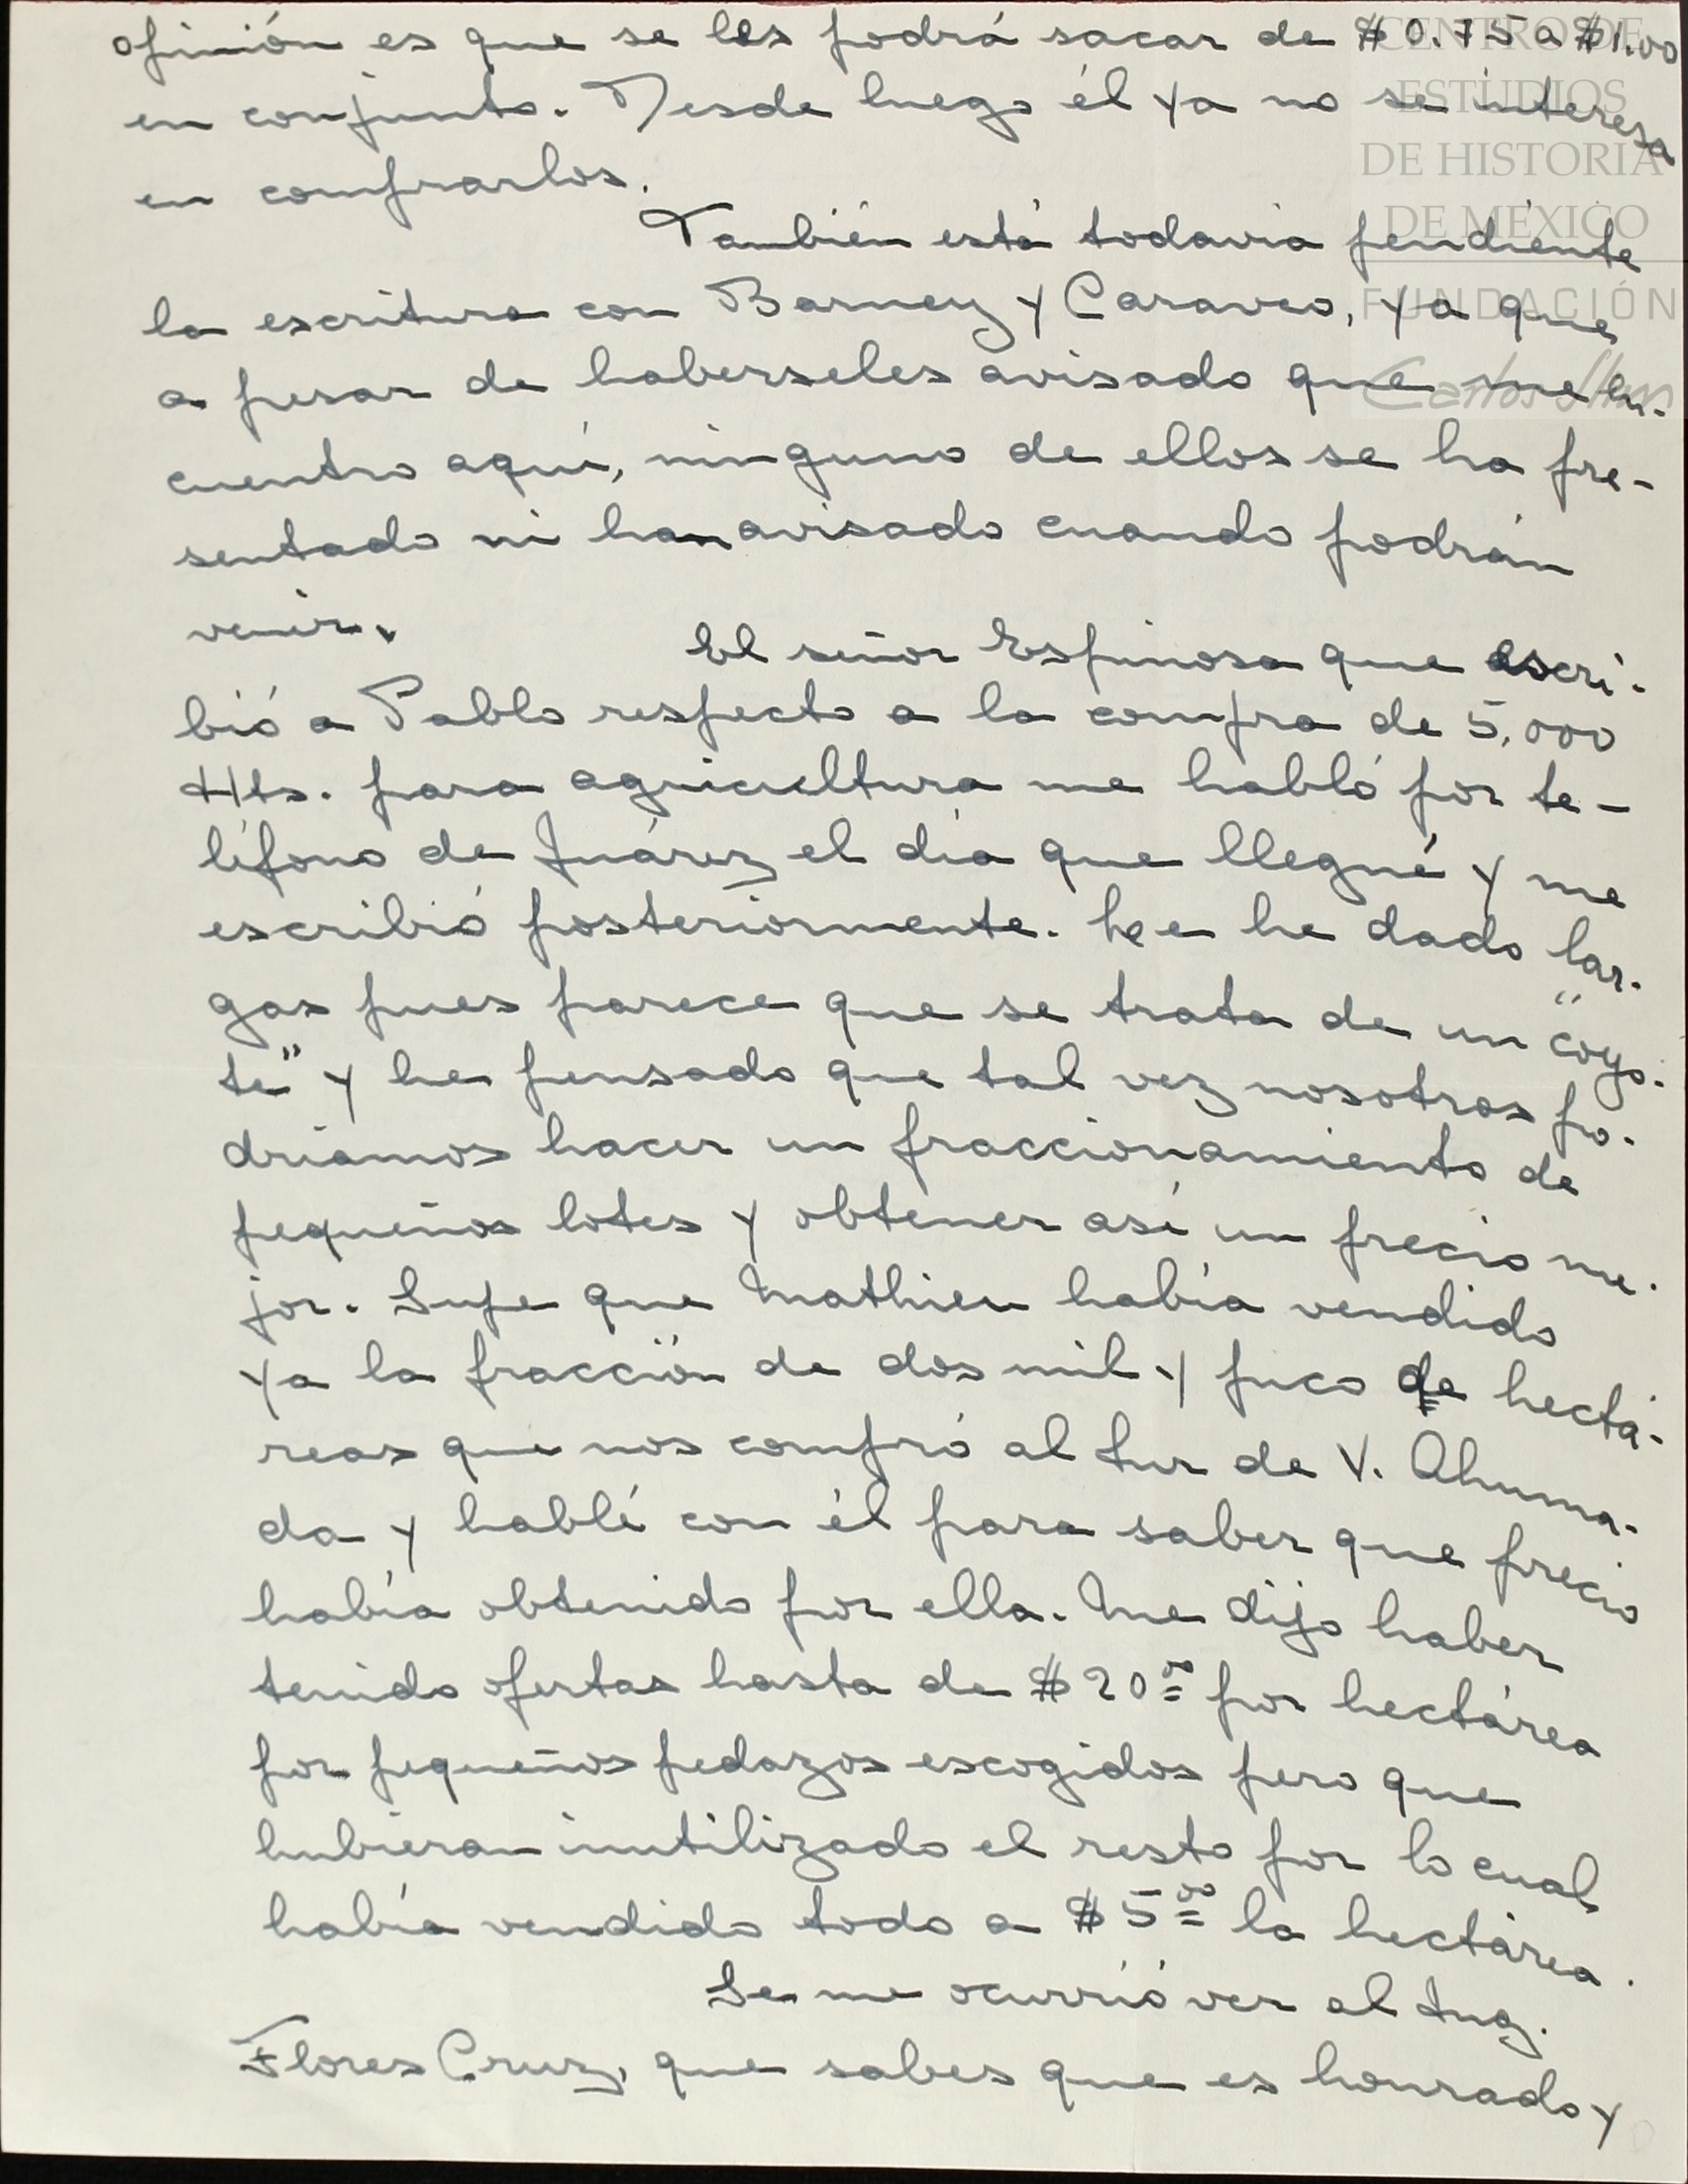 opinión es que se les podrá sacar de $0.75 a $1.00
en conjunto. Desde luego él ya no se interesa
en comprarlos.
También está todavia pendiente
la escritura con Barney y Caraveo, ya que
a pesar de haberseles avisado que me en-
cuentro aquí, ninguno de ellos se ha pre-
sentado ni han avisado cuando podrán
venir.
El señor Espinosa que escri-
bió a Pablo respecto a la compra de 5,000
Hts. para agricultura me habló por te-
léfono de Juárez el día que llegué y me
escribió posteriormente. Le he dado lar-
gas pues parece que se trata de un "coyo-
te" y he pensado que tal vez nosotros po-
driamos hacer un fraccionamiento de
pequeños lotes y obtener así un precio me-
jor. Supe que Mathieu había vendido
ya la fracción de dos mil y pico de hectá-
reas que nos compró al Sur de V. Ahuma-
da y hablé con él para saber que precio
había obtenido por ella. Me dijo haber
tenido ofertas hasta de $20.00 por hectárea
por pequeños pedazos escogidos pero que
hubieran inutilizado el resto por lo cual
había vendido todo a $5.00 la hectárea.
Se me ocurrió ver al Ing.
Flores Cruz, que sabes que es honrado y
CENTRO DE
ESTUDIOS
DE HISTORIA
DE MÉXICO
FUNDACIÓN
Carlos Slim